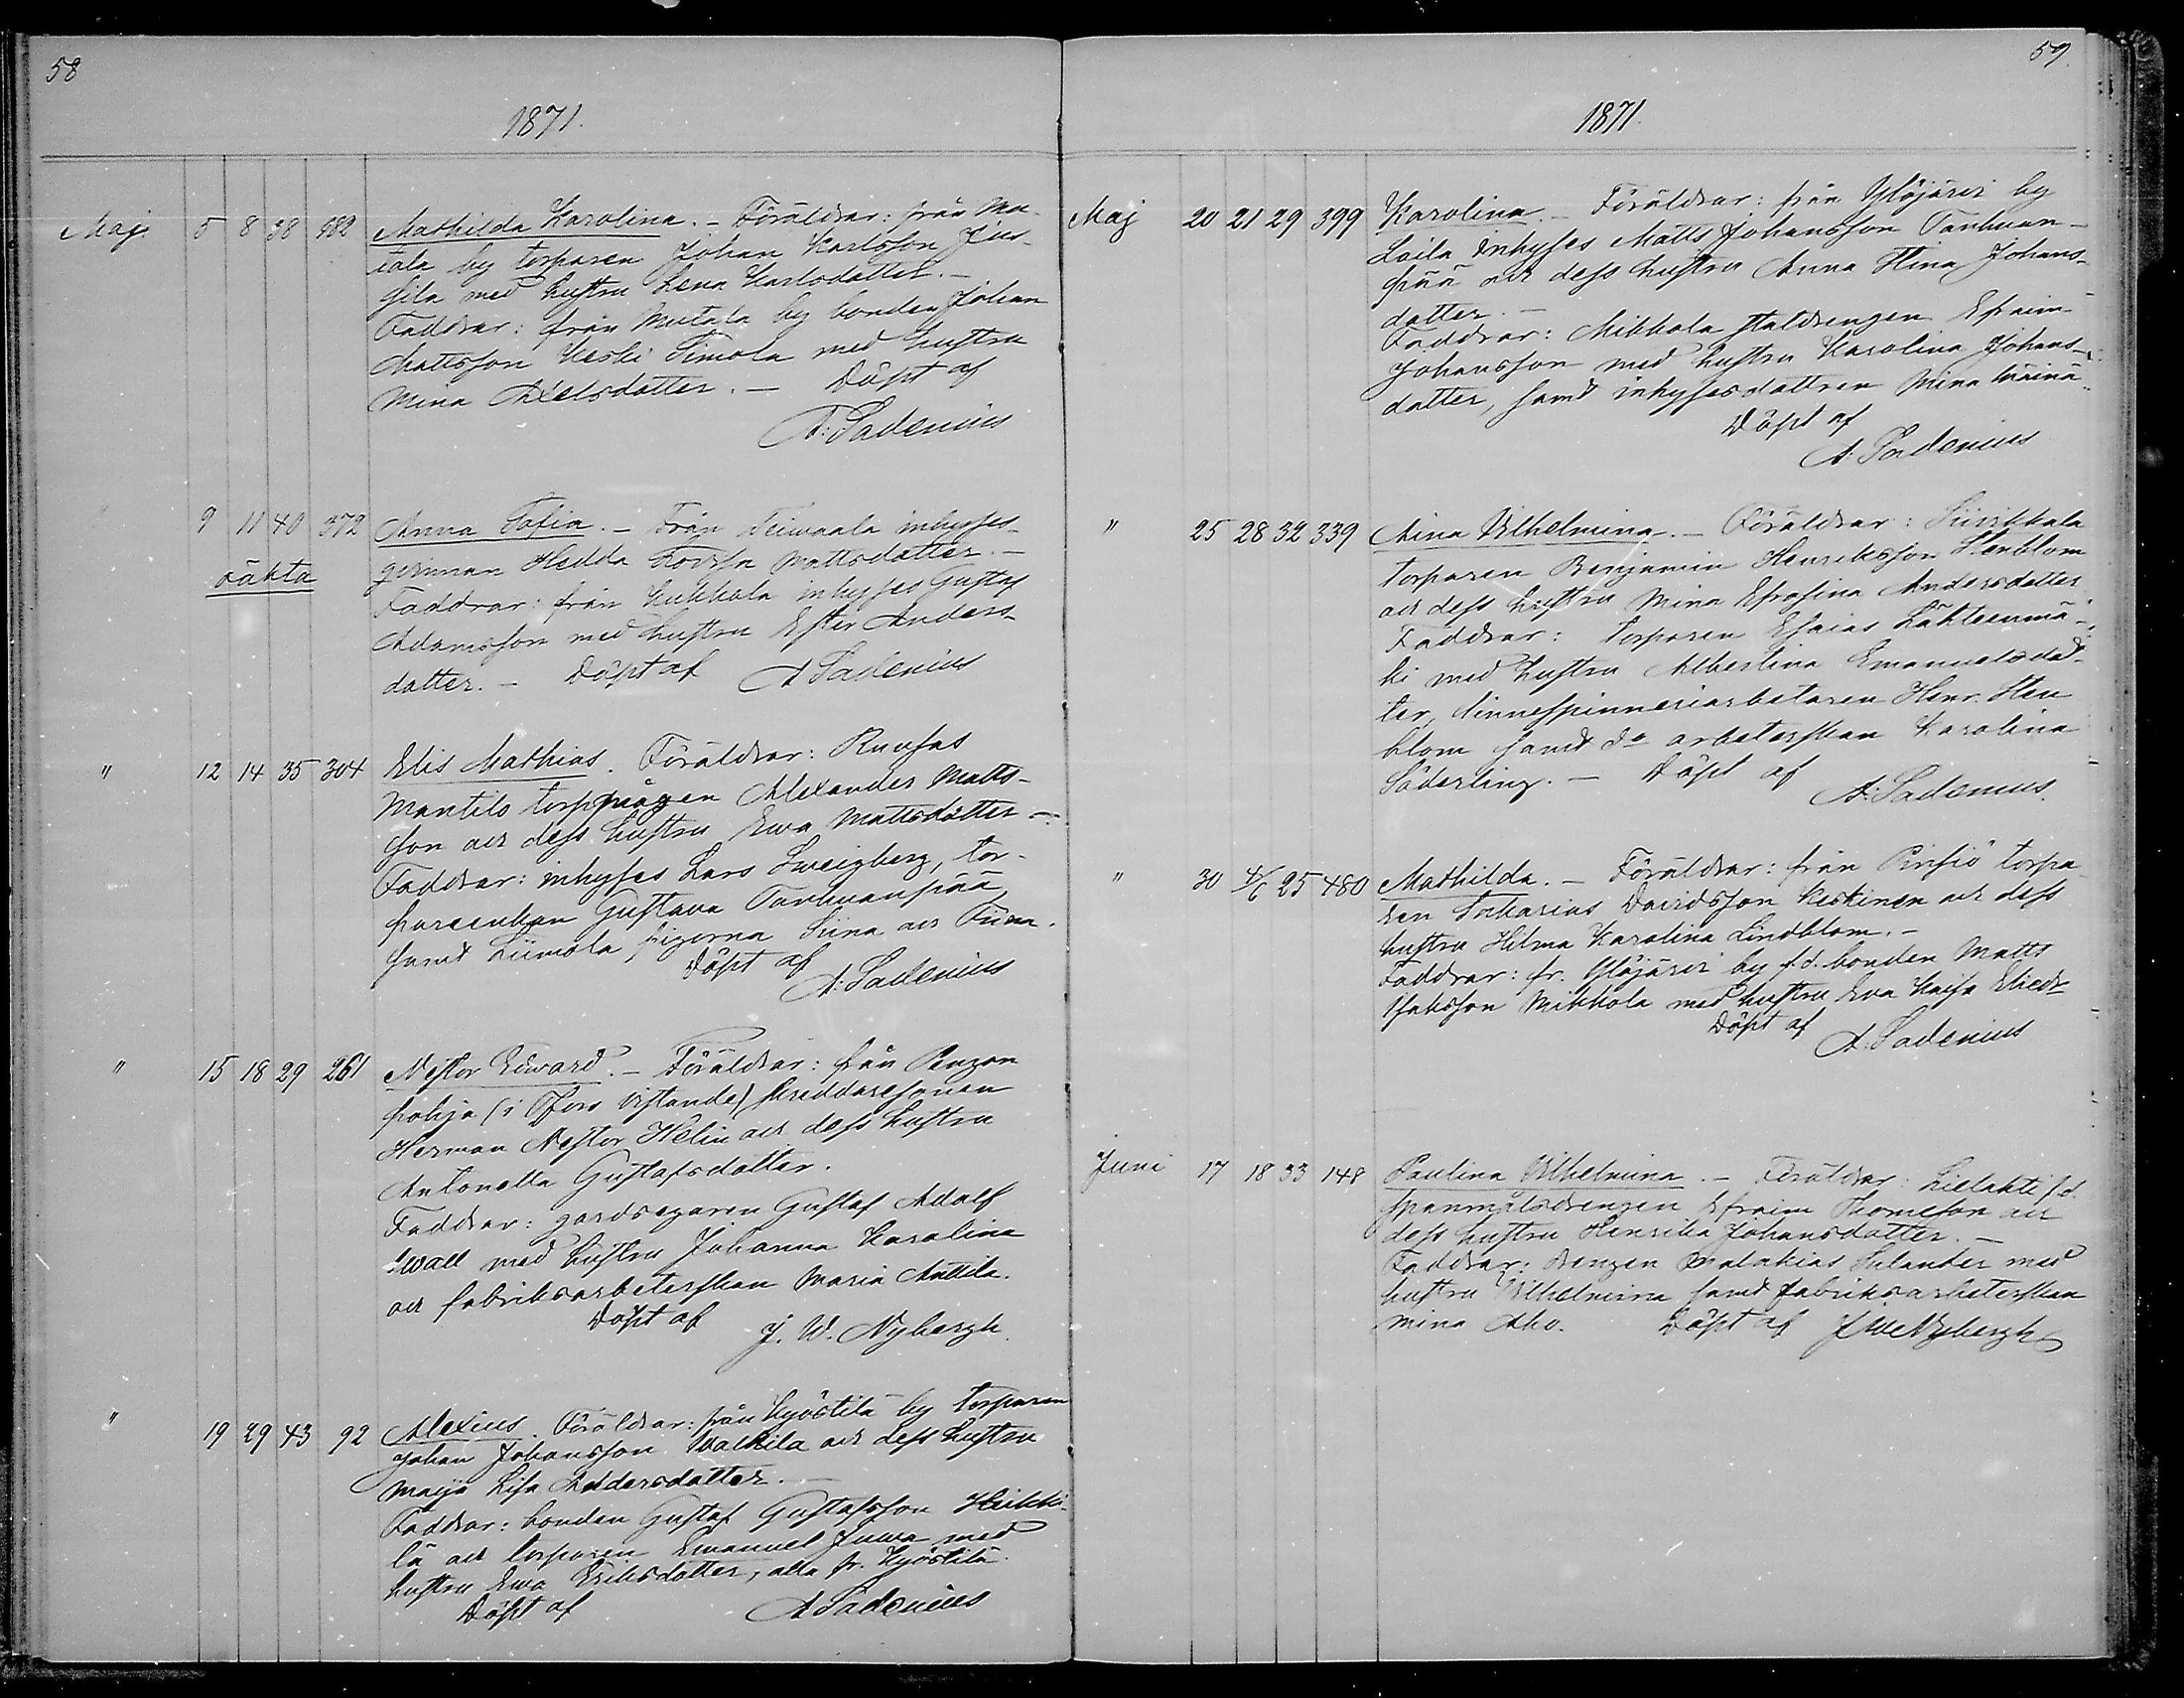 58
1871.
Maj. 5 8 38 682 Mathilda Karolina. – Föräldrar: från Mu-
tala by torparen Johan Karlsson Jus-
sila med hustru Lena Karlsdotter. –
Faddrar: från Mutala by bonden Johan
Mattsson Keski Simola med hustru
Mina Axelsdotter. – Döpt af
A. Ladenius
9 11 40 372 Anna Sofia. – Från Teiwaala inhyses-
oäkta
qvinnan Hedda Lovisa Mattsdotter. –
Faddrar: från Kukkola inhyses Gustaf
Adamsson med hustru Ester Anders-
dotter. – Döpt af A Ladenius
" 12 14 35 304 Elis Mathias. Föräldrar: Runsas
Mantils torpmågen Alexander Matts-
son och dess hustru Ewa Mattsdotter –
Faddrar: inhyses Lars Sweigberg, tor-
parenkan Gustava Tanhuanpää
samt Liimola pigorna Siina och Fiina.
Döpt af
A. Ladenius
" 15 18 29 261 Nestor Edward. – Föräldrar: från Pengon
pohja (i Tfors vistande) skreddaresonen
Herman Nestor Helin och dess hustru
Antonetta Gustafsdotter.
Faddrar: gårdsegaren Gustaf Adolf
Wall med hustru Johanna Karolina
och fabriksarbeterskan Maria Anttila.
Döpt af
J. W. Nybergh.
" 19 29 43 92 Alexius. Föräldrar: från Kyöstilä by torparen
Johan Johansson Walkila och dess hustru
Maija Lisa Andersdotter. –
Faddrar: bonden Gustaf Gustafsson Heikki-
lä och torparen Emanuel Juwa med
hustru Ewa Eriksdotter, alla fr. Kyöstilä.
Döpt af A Ladenius
59.
1871.
Maj 20 21 29 399 Karolina. – Föräldrar: från Ylöjärvi by
Laila inhyses Matts Johansson Tanhuan-
pää och dess hustru Anna Stina Johans-
dotter. –
Faddrar: Mikkola staldrengen Efraim
Johansson med hustru Karolina Johans-
dotter, samt inhysesdottren Mina
Döpt af
A. Ladenius
" 25 28 32 339 Aina Wilhelmina. – Föräldrar: Siivikkala
torparen Benjamin Henriksson Stenblom
och dess hustru Mina Efrosina Andersdotter
Faddrar: torparen Esaias Lähteenmä-
ki med hustru Albertina Emanuelsdot-
ter, linnespinneriarbetaren Henr. Sten
blom samt do arbeterskan Karolina
Söderling. – Döpt af
A. Ladenius.
" 30 4/6 25 480 Mathilda. – Föräldrar: från Pinsiö torpa-
ren Zacharias Davidsson Keskinen och dess
hustru Hilma Karolina Lindblom. –
Faddrar: fr. Ylöjärvi by f.d. bonden Matts
Isaksson Mikkola med hustru Eva Kaisa Eliedr
Döpt af
A. Ladenius
Juni 17 18 33 148 Paulina Wilhelmina. – Föräldrar: Lielahti f.d.
spanmålsdrengen Efraim Thomeson och
dess hustru Henrika Johansdotter. –
Faddrar: drengen Malakias Selander med
hustru Wilhelmina samt fabriksarbeterskan
Mina Aho. Döpt af J W Nybergh